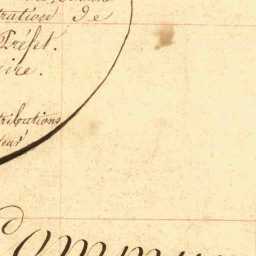 tration de
Préfet.
ire.
tributions
teur
Commun